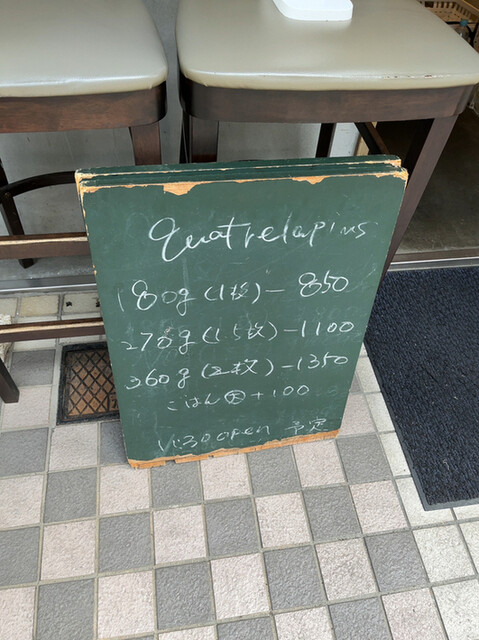 Quatrelapins
180g (1枚) - 850
270g (1.5枚) - 1100
360g (2枚) - 1350
ごはん大 + 100
11:30 open 予定